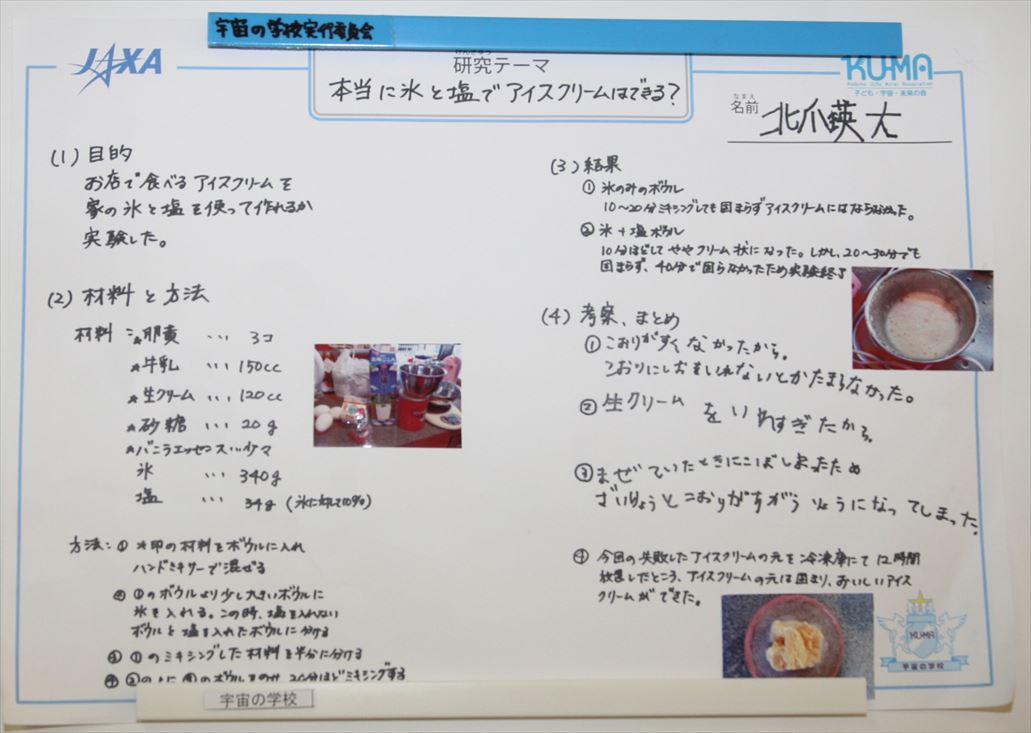 宇宙の学校実行委員会
JAXA
けんきゅう
研究テーマ
本当に氷と塩でアイスクリームはできる?
KUMA
子ども・宇宙・未来の会
なまえ
名前 北爪 瑛大
(1) 目的
お店で食べるアイスクリームを
家の氷と塩を使って作れるか
実験した。
(2) 材料と方法
材料:★卵黄 … 3コ
★牛乳 … 150cc
★生クリーム … 120cc
★砂糖 … 20g
★バニラエッセンス … 少々
氷 … 340g
塩 … 34g (氷に対して10%)
方法:① ★印の材料をボウルに入れ
ハンドミキサーで混ぜる
② ①のボウルより少し大きいボウルに
氷を入れる。この時、塩を入れない
ボウルと塩を入れたボウルに分ける
③ ①のミキシングした材料を半分に分ける
④ ②の上に③のボウルをのせ 20分ほどミキシングする
(3) 結果
① 氷のみのボウル
10〜20分ミキシングしても固まらずアイスクリームにはならなかった。
② 氷+塩ボウル
10分ほどしてややクリーム状になった。しかし、20〜30分でも
固まらず、40分で固らなかったため実験終了
(4) 考察、まとめ
① こおりがすくなかったから。
こおりにしおをいれないとかたまらなかった。
② 生クリームをいれすぎたから。
③ まぜていたときにこぼしまったため
ざいりょうとこおりがちがうりょうになってしまった。
④ 今回の失敗したアイスクリームの元を冷凍庫にて12時間
放置したところ、アイスクリームの元は固まり、おいしいアイス
クリームができた。
KUMA
宇宙の学校
宇宙の学校